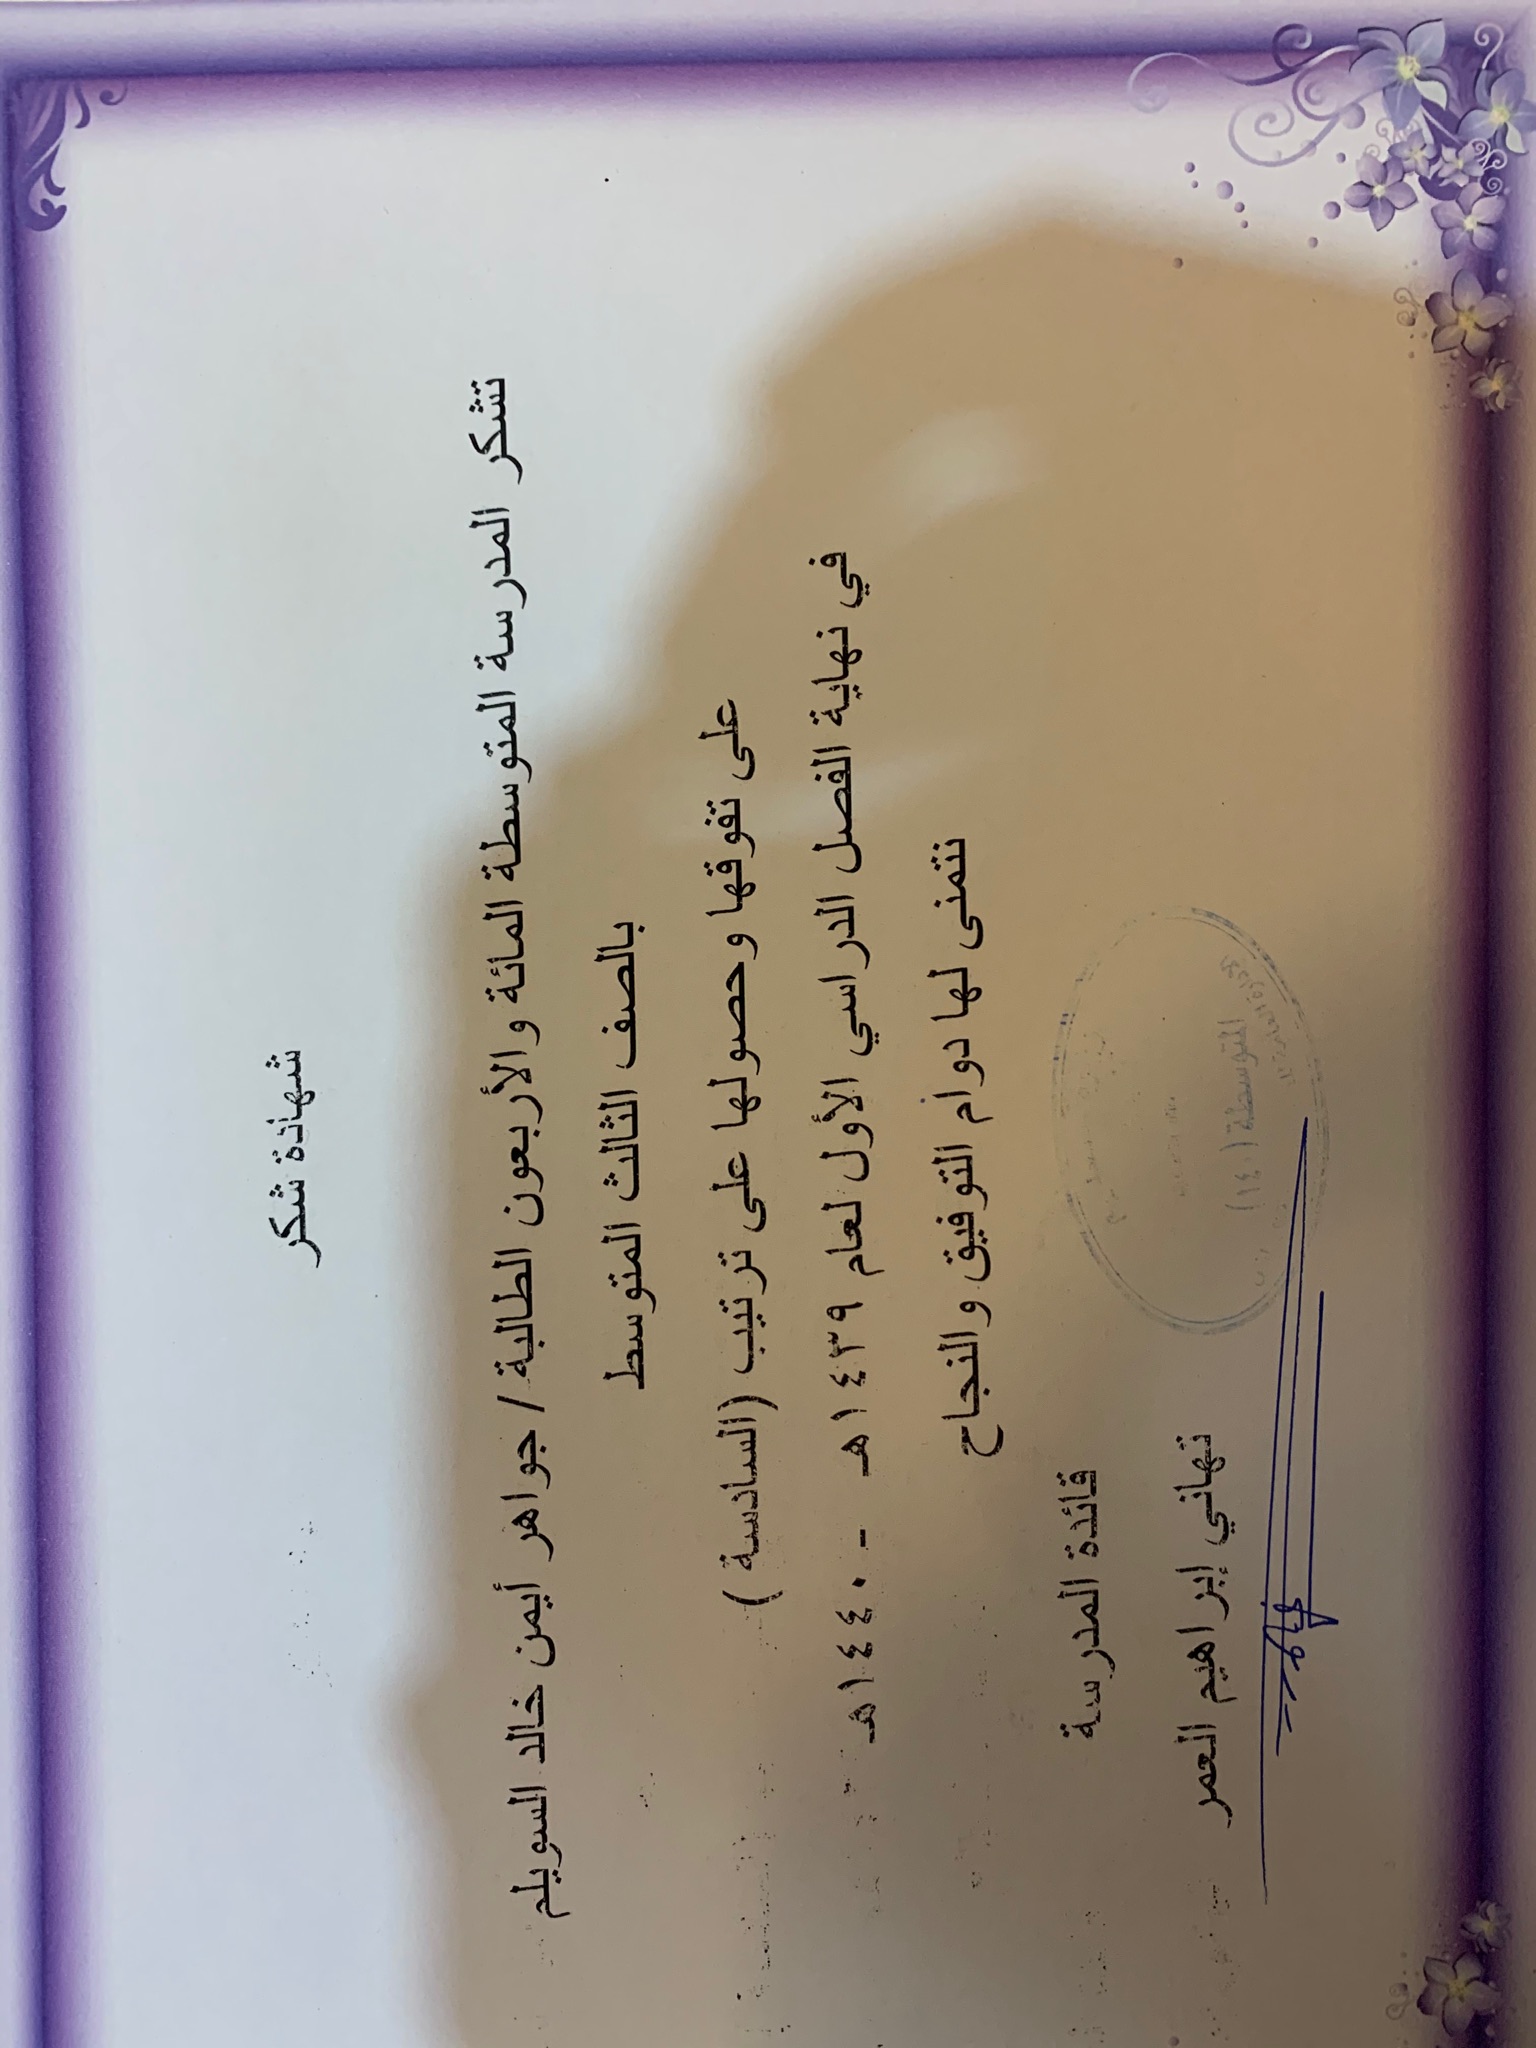 شهادة شكر
تشكر المدرسة المتوسطة المائة والأربعون الطالبة / جواهر أيمن خالد السويلم
بالصف الثالث المتوسط
على تفوقها وحصولها على ترتيب (السادسة )
في نهاية الفصل الدراسي الأول لعام ١٤٣٩هـ - ١٤٤٠هـ
نتمنى لها دوام التوفيق والنجاح
قائدة المدرسة
تهاني إبراهيم العمر
المتوسطة (١٤٠)